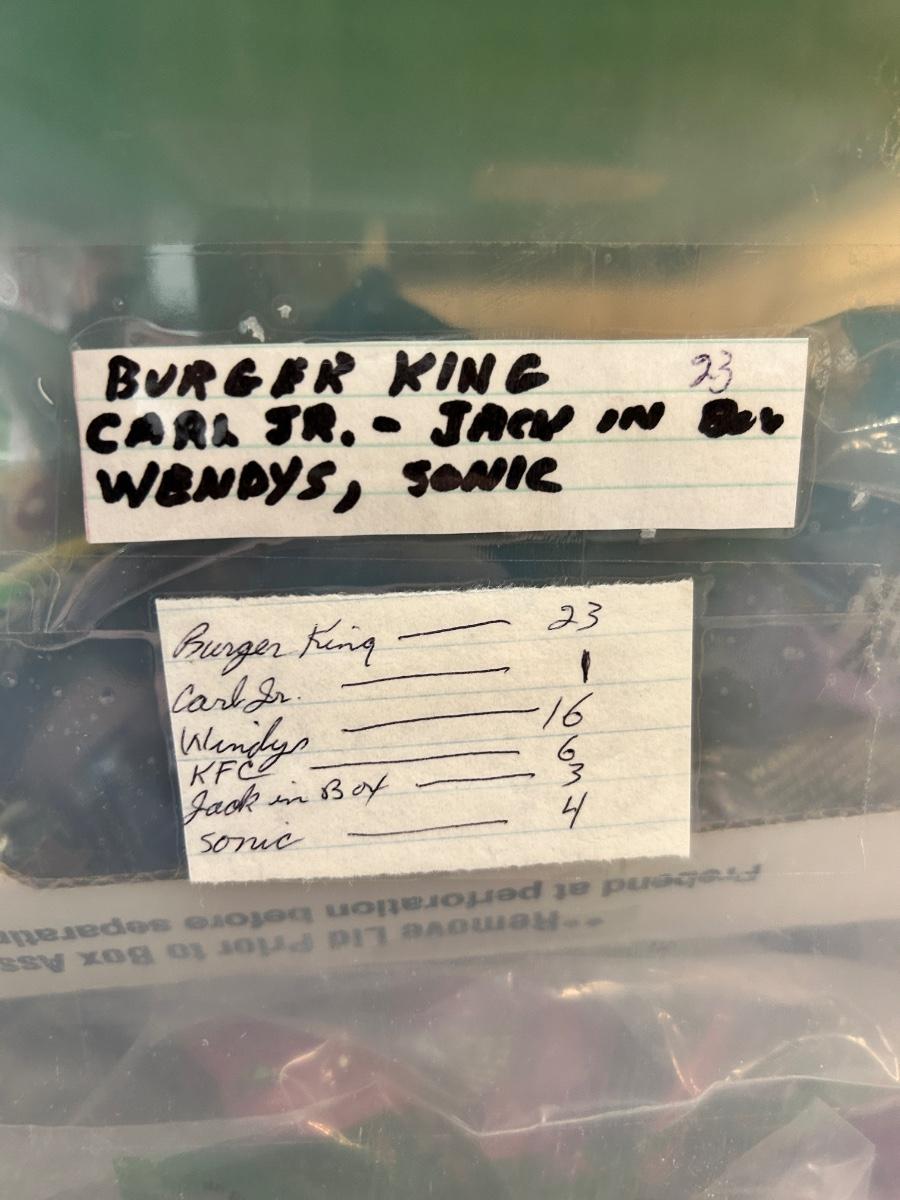 BURGER KING 23
CARL JR. - JACK IN BOX
WENDYS, SONIC
Burger King — 23
Carl Jr. — 1
Wendys — 16
KFC — 6
Jack in Box — 3
Sonic — 4
Prebend at perforation before
**Remove Lid Prior to Box